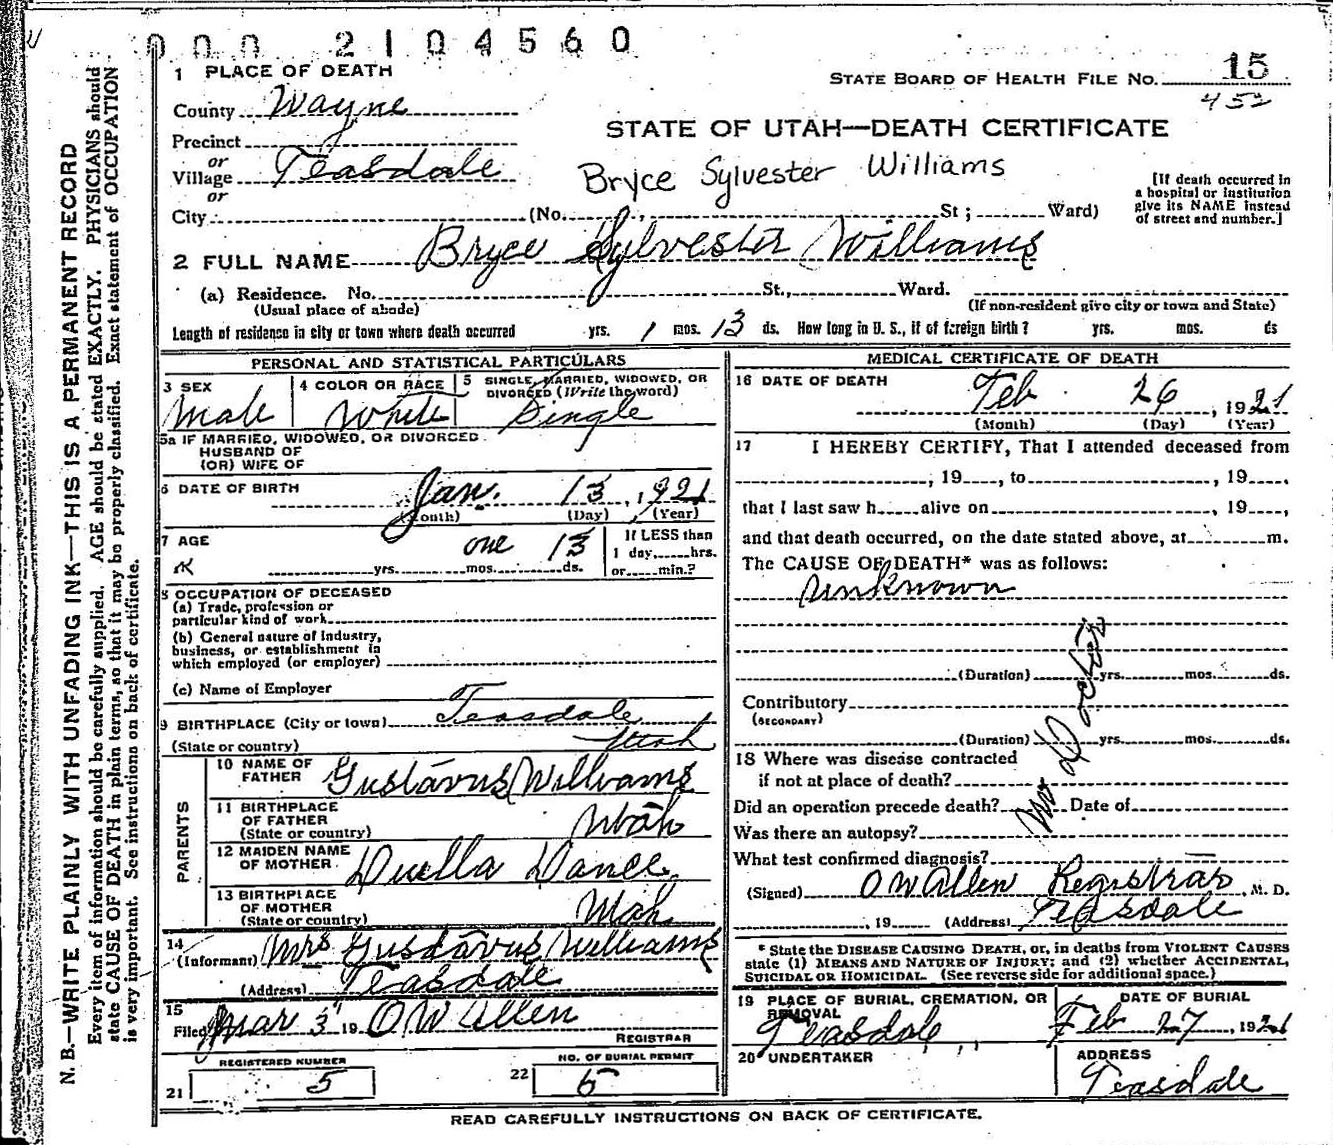 0 0 0 2 1 0 4 5 6 0
N. B.—WRITE PLAINLY WITH UNFADING INK—THIS IS A PERMANENT RECORD
Every item of information should be carefully supplied. AGE should be stated EXACTLY. PHYSICIANS should
state CAUSE OF DEATH in plain terms, so that it may be properly classified. Exact statement of OCCUPATION
is very important. See instructions on back of certificate.
STATE BOARD OF HEALTH FILE NO. 15
452
STATE OF UTAH—DEATH CERTIFICATE
1 PLACE OF DEATH
County Wayne
Precinct
or
Village Teasdale
or
Bryce Sylvester Williams
[If death occurred in
a hospital or institution
give its NAME instead
of street and number.]
City (No. St; Ward)
2 FULL NAME Bryce Sylvester Williams
(a) Residence. No. St., Ward.
(Usual place of abode) (If non-resident give city or town and State)
Length of residence in city or town where death occurred yrs. 1 mos. 13 ds. How long in U. S., if of foreign birth? yrs. mos. ds
PERSONAL AND STATISTICAL PARTICULARS
3 SEX
Male
4 COLOR OR RACE
White
5 SINGLE, MARRIED, WIDOWED, OR
DIVORCED (Write the word)
Single
5a IF MARRIED, WIDOWED, OR DIVORCED
HUSBAND OF
(OR) WIFE OF
6 DATE OF BIRTH Jan. 13, 1921
(Month) (Day) (Year)
7 AGE
one 13
yrs. mos. ds.
If LESS than
1 day, hrs.
or min.?
8 OCCUPATION OF DECEASED
(a) Trade, profession or
particular kind of work
(b) General nature of Industry,
business, or establishment in
which employed (or employer)
(c) Name of Employer
9 BIRTHPLACE (City or town) Teasdale
(State or country) Utah
PARENTS
10 NAME OF
FATHER Gustavus Williams
11 BIRTHPLACE
OF FATHER
(State or country) Utah
12 MAIDEN NAME
OF MOTHER Duella Dance
13 BIRTHPLACE
OF MOTHER
(State or country) Utah
14
(Informant) Mrs Gustavus Williams
(Address) Teasdale
15
Filed Mar 3 19 O W Allen
REGISTRAR
REGISTERED NUMBER
21 5
NO. OF BURIAL PERMIT
22 5
MEDICAL CERTIFICATE OF DEATH
16 DATE OF DEATH
Feb 26, 1921
(Month) (Day) (Year)
17 I HEREBY CERTIFY, That I attended deceased from
, 19 , to , 19 ,
that I last saw h alive on , 19 ,
and that death occurred, on the date stated above, at m.
The CAUSE OF DEATH* was as follows:
Unknown
(Duration) yrs. mos. ds.
Contributory
(SECONDARY)
(Duration) yrs. mos. ds.
No Doctor
18 Where was disease contracted
if not at place of death?
Did an operation precede death? Date of
Was there an autopsy?
What test confirmed diagnosis?
(Signed) O W Allen Registrar, M. D.
, 19 (Address) Teasdale
* State the DISEASE CAUSING DEATH, or, in deaths from VIOLENT CAUSES
state (1) MEANS AND NATURE OF INJURY; and (2) whether ACCIDENTAL,
SUICIDAL OR HOMICIDAL. (See reverse side for additional space.)
19 PLACE OF BURIAL, CREMATION, OR
REMOVAL
Teasdale
DATE OF BURIAL
Feb 27, 1921
20 UNDERTAKER
ADDRESS
Teasdale
READ CAREFULLY INSTRUCTIONS ON BACK OF CERTIFICATE.